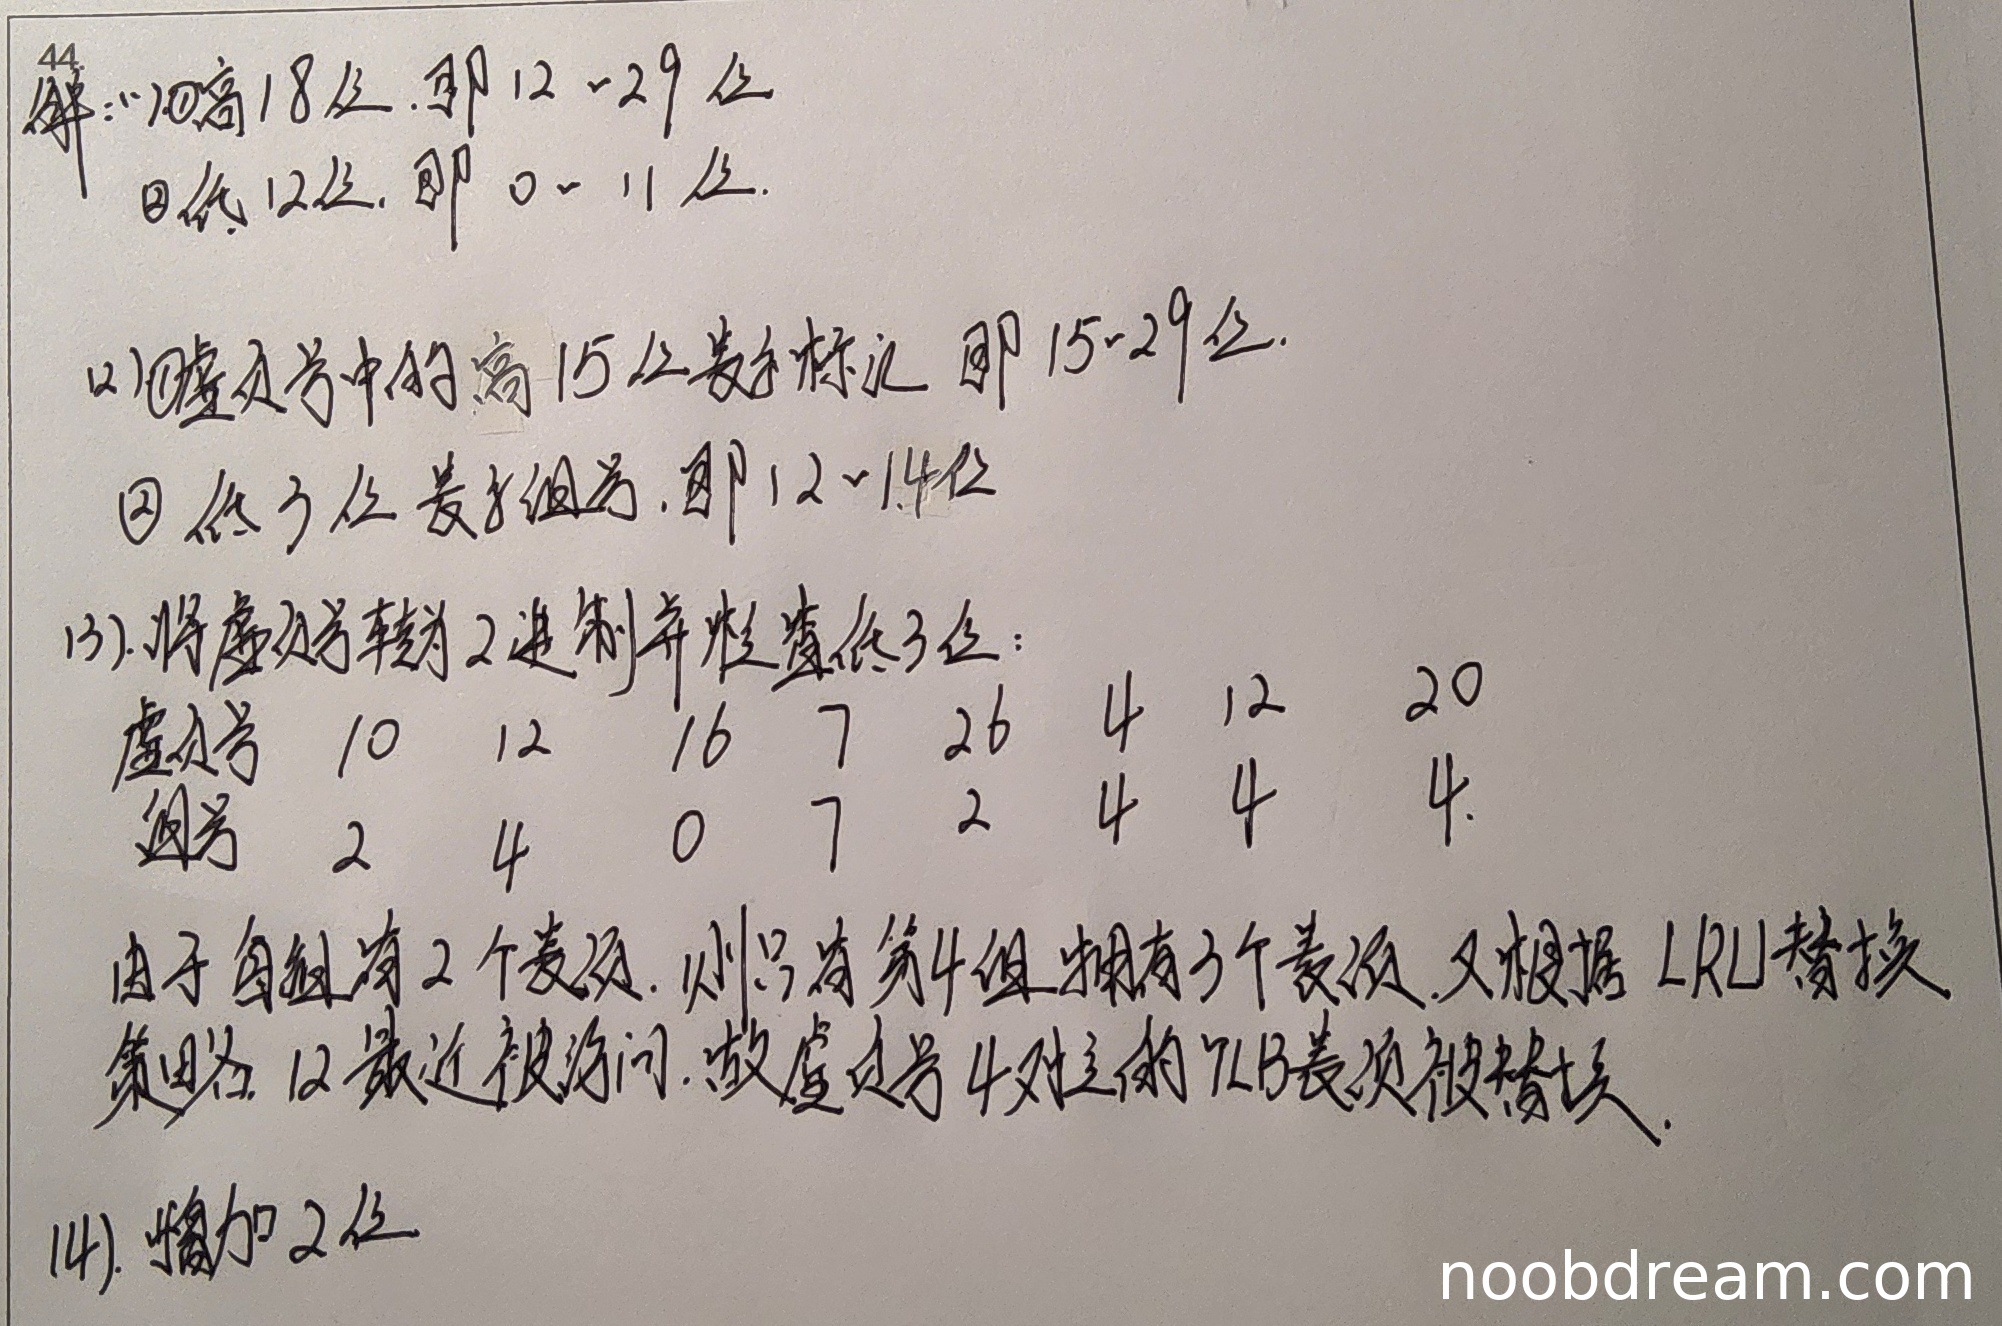 44.
解:(1)①高18位.即12~29位
②低12位.即0~11位.
(2)①虚页号中的高15位表示标记 即15~29位.
②低3位表示组号.即12~14位
(3).将虚页号转为2进制并检查低3位:
虚页号 10 12 16 7 26 4 12 20
组号 2 4 0 7 2 4 4 4.
由于每组有2个表项.则只有第4组拥有3个表项.又根据LRU替换
策略.12最近被访问.故虚页号4对应的TLB表项被替换.
(4).增加2位
noobdream.com